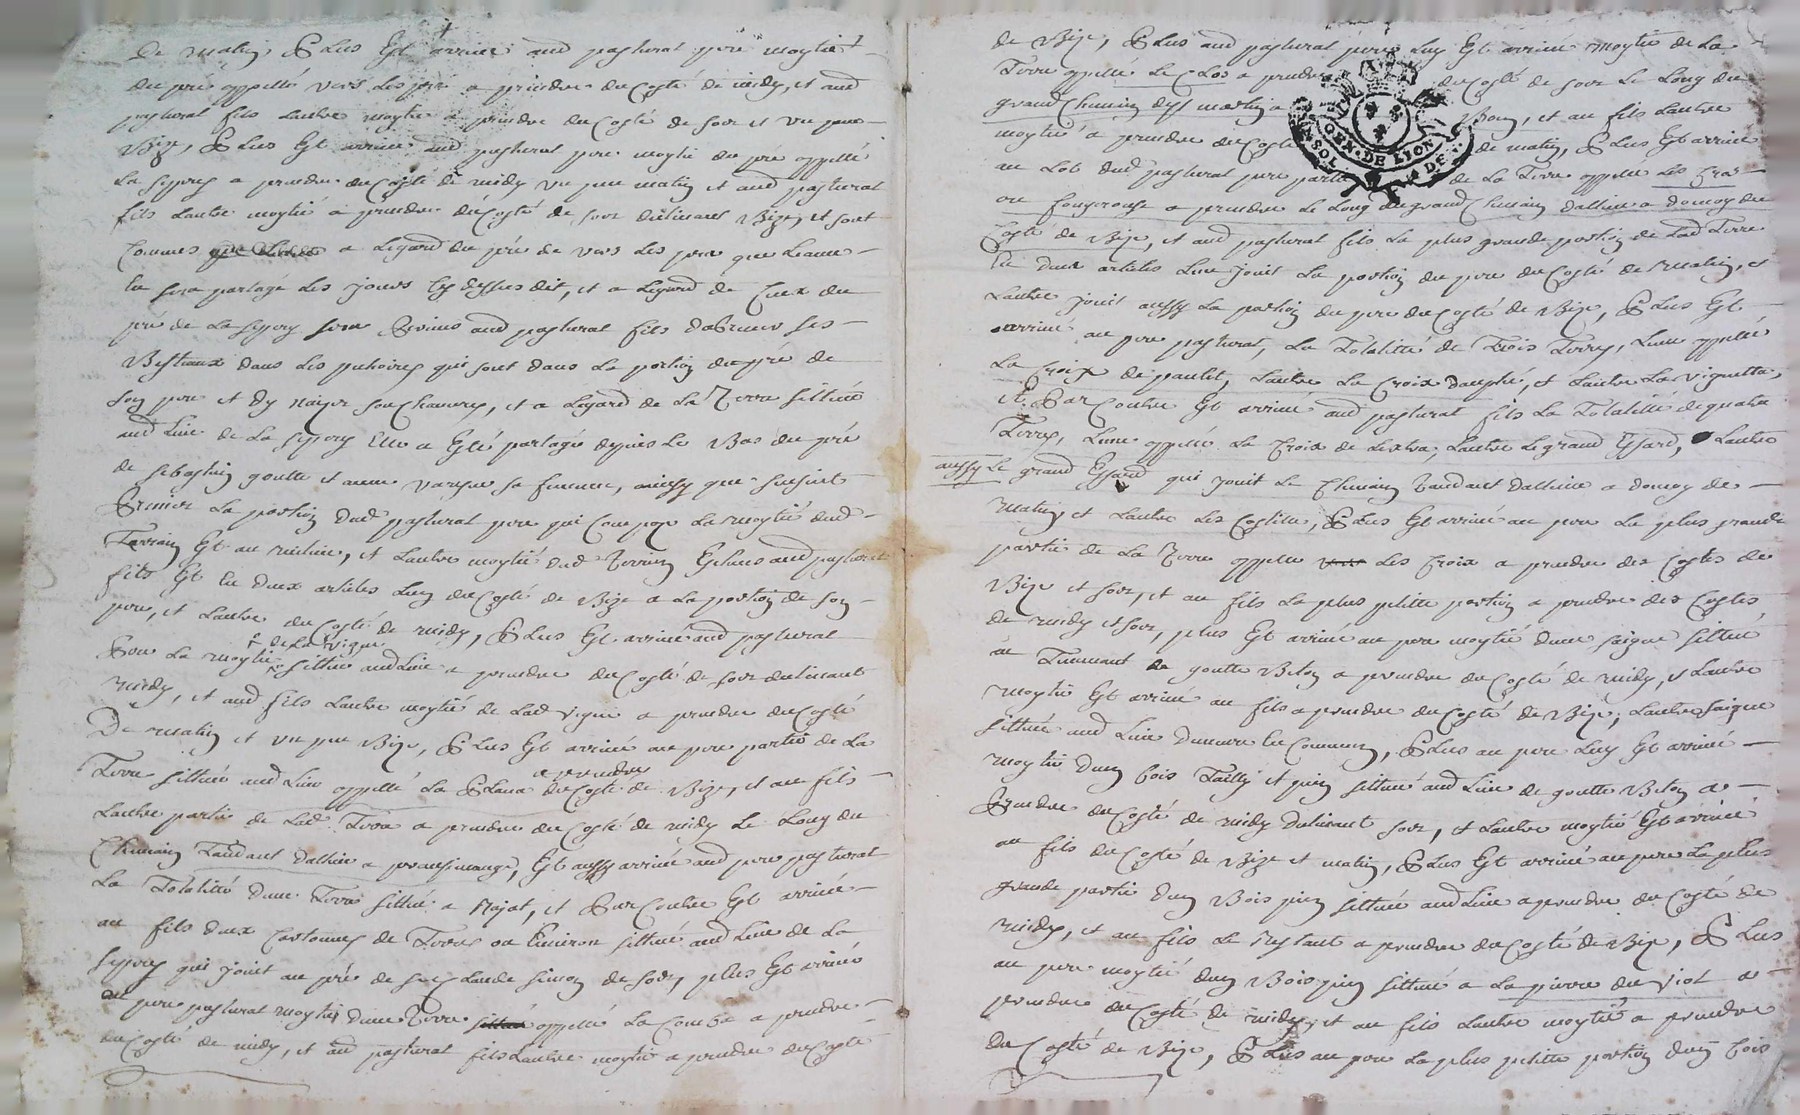 De matin, Plus Est arrivé aud pasturat père moytié
du pré appellé vers Les prez a prendre du Costé de midy, et aud
pasturat fils Lautre moytié a prendre du Costé de soir et un peu
Bize, Plus Est arrivé aud pasturat pere moytié du pré appellé
La seprey a prendre du Costé de midy un peu matin et aud pasturat
fils Lautre moytié a prendre du Costé de soir déclinant Bize, et sont
Convenus a Legard du pré de vers Les prez que Leau
sera partagé Les jours cy dessus dit, et a Legard de Ceux du
pré de La seprey sera Permis aud pasturat fils dabreuver ses
Bestiaux dans Les qui sont dans La portion du pré de
son pere et dy naiyer son Chanvre, et a Legard de La Terre sittuée
aud Lieu de La seprey Elle a Eté partagée depuis Le Bas du pré
de sebastien goutte et anne sa femme, aussy que suisuit
Premier La portion dud pasturat pere qui Compose La moytié dud
Terrain Est au milieu, et Lautre moytié dud Terrain Echus aud pasturat
fils Est En deux articles Lun du Costé de Bize a La portion de son
pere, et Lautre du Costé de midy, Plus Est arrivé aud pasturat
+ de La vigne
Pere La moytié + sittuée aud Lieu a prendre du Costé de soir déclinant
midy, et aud fils Lautre moytié de Lad vigne a prendre du Costé
De matin et un peu Bize, Plus Est arrivé au pere partie de La
a prendre
Terre sittuée aud Lieu appellé La Plana du Costé de Bize, et au fils
Lautre partie de Lad Terre a prendre du Costé de midy Le Long du
Chemin Tandant dallieu a, Est aussy arrivé aud pere pasturat
La Totalitté dune Terre sittuée a Rajat, et Par Contre Est arrivée
au fils deux Cartonnes de Terre ou Environ sittuée aud Lieu de La
seprey qui joint au pré de sr Claude simon de soir, plus Est arrivé
au pere pasturat moytié dune Terre sittuée appellé La Comba a prendre
du Costé de midy, et aud pasturat fils Lautre moytié a prendre du Costé
de Bize, Plus aud pasturat pere Luy Est arrivé moytié de La
Terre appellé Le Clos a prendre du Costé de soir Le Long du
grand Chemin a Bourg, et au fils Lautre
moytié a prendre du Costé de matin, Plus Est arrivé
GEN. DE LYON
au Lot dud pasturat pere partie de La Terre appellé Les Cra
ou fougerouse a prendre Le Long du grand Chemin dallieu a domoy du
Costé de Bize, et aud pasturat fils La plus grande portion de Lad Terre
En deux articles Lun joint La portion du pere du Costé de Matin, et
Lautre joint aussy La portion du pere du Costé de Bize, Plus Est
arrivé au pere pasturat, La Totalitté de Trois Terres, Lune appellé
La Croix de paulet, Lautre La Croix dauphé, et Lautre La viguetta,
Et Par Contre Est arrivé aud pasturat fils La Totalitté de quatre
Terres, Lune appellé La Croix de Lestra, Lautre Le grand Essard, Lautre
aussy Le grand Essard qui joint Le Chemin Tandant dallieu a domoy de
Matin, et Lautre Les Costilles, Plus Est arrivé au pere La plus grande
partie de La Terre appellé Les Croix a prendre des Costés de
Bize et soir, et au fils La plus petitte portion a prendre des Costés
de midy et soir, plus Est arrivé au pere moytié dune saigne sittuée
au Tunnant de goutte Beton a prendre du Costé de midy, et Lautre
moytié Est arrivé au fils a prendre du Costé de Bize, Lautre saigne
sittuée aud Lieu demeure En Commun, Plus au pere Luy Est arrivé
moytié dun bois Tailly et pin sittuée aud Lieu de goutte Beton a
Prendre du Costé de midy Delinant soir, et Lautre moytié Est arrivée
au fils du Costé de Bize et matin, Plus Est arrivé au pere La plus
grande partie dun Bois pin sittué aud Lieu a prendre du Costé de
midy, et au fils Le Restant a prendre du Costé de Bize, Plus
au pere moytié dun Bois pin sittué a La pierre du Viol a
prendre du Costé de midy, et au fils Lautre moytié a prendre
du Costé de Bize, Plus au pere La plus petitte portion dun bois